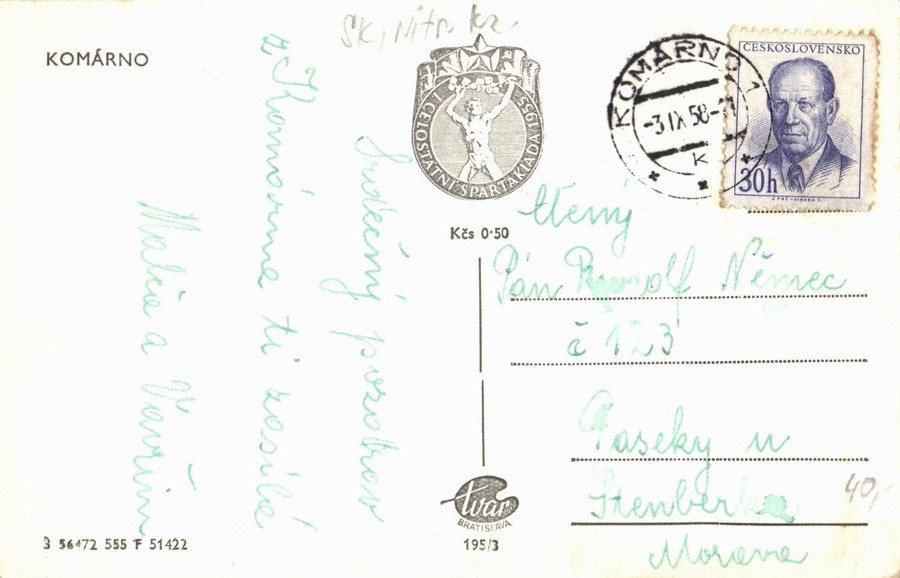 SK, Nitr. kr.
KOMÁRNO
CELOSTÁTNÍ SPARTAKIÁDA 1955
Kčs 0·50
KOMÁRNO 1
-3.IX.58-
K
ČESKOSLOVENSKO
30h
Srdečný pozdrav
z Komárna ti zasílá
Malca a Vavřín
Ctený
Pán Rudolf Němec
č 123
Paseky u
Šternberka
Morava
40,-
tvar
BRATISLAVA
195/3
3 56472 555 F 51422